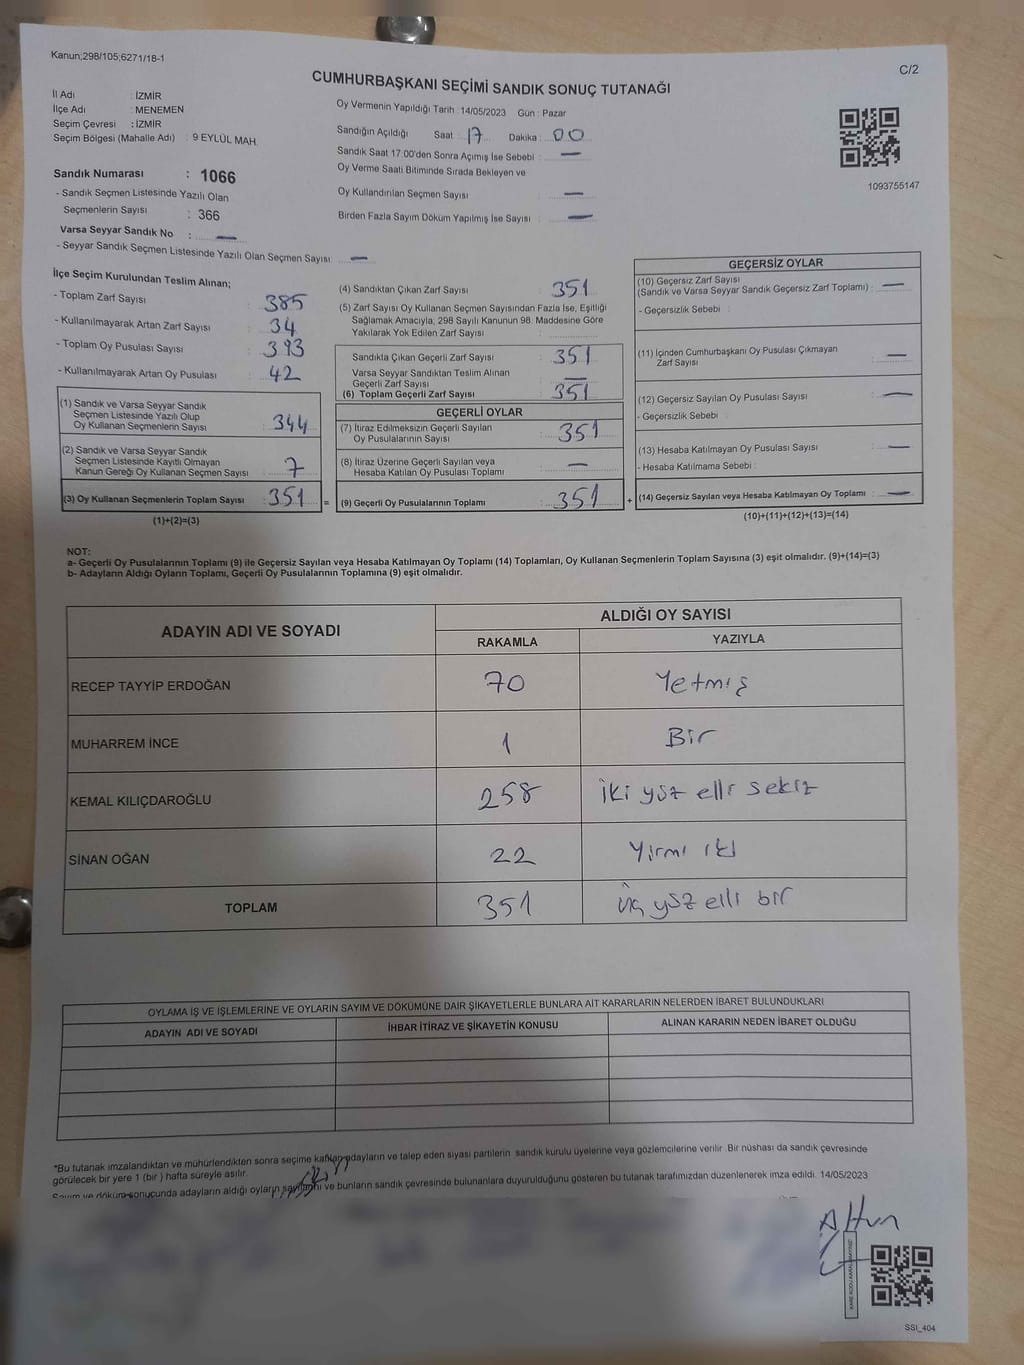 Kanun;298/105;6271/18-1
C/2
CUMHURBAŞKANI SEÇİMİ SANDIK SONUÇ TUTANAĞI
İl Adı : İZMİR
İlçe Adı : MENEMEN
Seçim Çevresi : İZMİR
Seçim Bölgesi (Mahalle Adı) : 9 EYLÜL MAH.
Oy Vermenin Yapıldığı Tarih : 14/05/2023 Gün : Pazar
Sandığın Açıldığı Saat : 17 Dakika : 00
Sandık Saat 17:00'den Sonra Açımış İse Sebebi : —
Oy Verme Saati Bitiminde Sırada Bekleyen ve
Oy Kullandırılan Seçmen Sayısı : —
Birden Fazla Sayım Döküm Yapılmış İse Sayısı : —
1093755147
Sandık Numarası : 1066
- Sandık Seçmen Listesinde Yazılı Olan
Seçmenlerin Sayısı : 366
Varsa Seyyar Sandık No : —
- Seyyar Sandık Seçmen Listesinde Yazılı Olan Seçmen Sayısı : —
İlçe Seçim Kurulundan Teslim Alınan;
- Toplam Zarf Sayısı : 385
- Kullanılmayarak Artan Zarf Sayısı : 34
- Toplam Oy Pusulası Sayısı : 393
- Kullanılmayarak Artan Oy Pusulası : 42
(1) Sandık ve Varsa Seyyar Sandık
Seçmen Listesinde Yazılı Olup
Oy Kullanan Seçmenlerin Sayısı : 344
(2) Sandık ve Varsa Seyyar Sandık
Seçmen Listesinde Kayıtlı Olmayan
Kanun Gereği Oy Kullanan Seçmen Sayısı : 7
(3) Oy Kullanan Seçmenlerin Toplam Sayısı : 351 =
(1)+(2)=(3)
(4) Sandıktan Çıkan Zarf Sayısı : 351
(5) Zarf Sayısı Oy Kullanan Seçmen Sayısından Fazla İse, Eşitliği
Sağlamak Amacıyla, 298 Sayılı Kanunun 98. Maddesine Göre
Yakılarak Yok Edilen Zarf Sayısı :
Sandıkta Çıkan Geçerli Zarf Sayısı : 351
Varsa Seyyar Sandıktan Teslim Alınan
Geçerli Zarf Sayısı : —
(6) Toplam Geçerli Zarf Sayısı : 351
GEÇERLİ OYLAR
(7) İtiraz Edilmeksizin Geçerli Sayılan
Oy Pusulalarının Sayısı : 351
(8) İtiraz Üzerine Geçerli Sayılan veya
Hesaba Katılan Oy Pusulası Toplamı : —
(9) Geçerli Oy Pusulalarının Toplamı : 351 +
GEÇERSİZ OYLAR
(10) Geçersiz Zarf Sayısı
(Sandık ve Varsa Seyyar Sandık Geçersiz Zarf Toplamı) : —
- Geçersizlik Sebebi :
(11) İçinden Cumhurbaşkanı Oy Pusulası Çıkmayan
Zarf Sayısı : —
(12) Geçersiz Sayılan Oy Pusulası Sayısı : —
- Geçersizlik Sebebi :
(13) Hesaba Katılmayan Oy Pusulası Sayısı : —
- Hesaba Katılmama Sebebi :
(14) Geçersiz Sayılan veya Hesaba Katılmayan Oy Toplamı : —
(10)+(11)+(12)+(13)=(14)
NOT:
a- Geçerli Oy Pusulalarının Toplamı (9) ile Geçersiz Sayılan veya Hesaba Katılmayan Oy Toplamı (14) Toplamları, Oy Kullanan Seçmenlerin Toplam Sayısına (3) eşit olmalıdır. (9)+(14)=(3)
b- Adayların Aldığı Oyların Toplamı, Geçerli Oy Pusulalarının Toplamına (9) eşit olmalıdır.
ADAYIN ADI VE SOYADI ALDIĞI OY SAYISI
RAKAMLA YAZIYLA
RECEP TAYYİP ERDOĞAN 70 Yetmiş
MUHARREM İNCE 1 Bir
KEMAL KILIÇDAROĞLU 258 iki yüz elli sekiz
SİNAN OĞAN 22 Yirmi iki
TOPLAM 351 üç yüz elli bir
OYLAMA İŞ VE İŞLEMLERİNE VE OYLARIN SAYIM VE DÖKÜMÜNE DAİR ŞİKAYETLERLE BUNLARA AİT KARARLARIN NELERDEN İBARET BULUNDUKLARI
ADAYIN ADI VE SOYADI İHBAR İTİRAZ VE ŞİKAYETİN KONUSU ALINAN KARARIN NEDEN İBARET OLDUĞU
*Bu tutanak imzalandıktan ve mühürlendikten sonra seçime katılan adayların ve talep eden siyasi partilerin sandık kurulu üyelerine veya gözlemcilerine verilir .Bir nüshası da sandık çevresinde
görülecek bir yere 1 (bir ) hafta süreyle asılır.
Sayım ve döküm sonucunda adayların aldığı oyların sayılarını ve bunların sandık çevresinde bulunanlara duyurulduğunu gösteren bu tutanak tarafımızdan düzenlenerek imza edildi. 14/05/2023
Altun
SSI_404